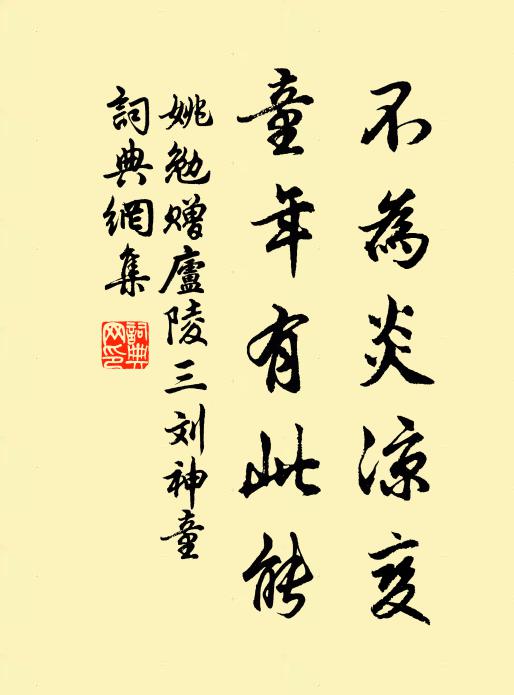 不為炎涼变
童年有此能
姚勉贈廬陵三刘神童
詞典網集
詞典
网印